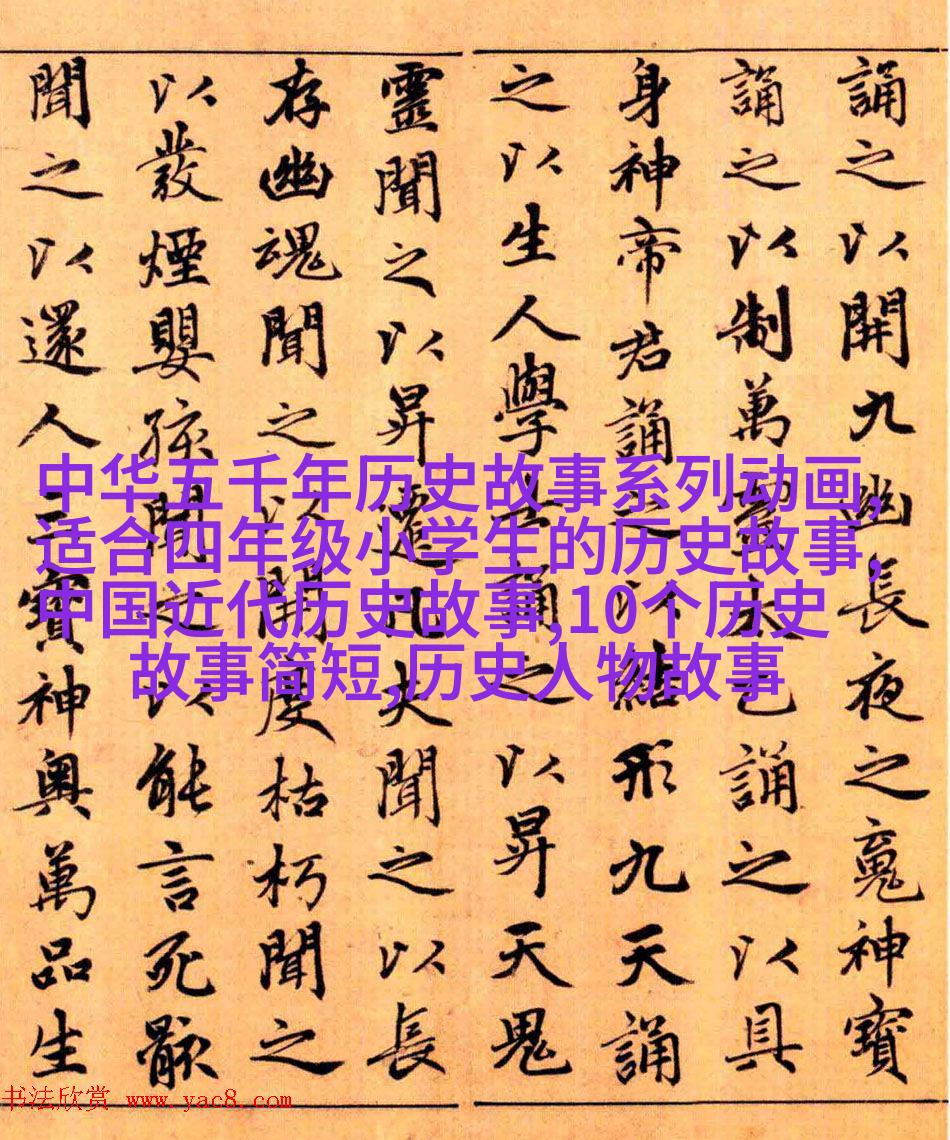 誦之以開九幽長夜之魂神寶
誦之以制萬靈太乙誦之以具
身神帝君誦之以結形九天誦
之以生人學士誦之以昇天鬼
靈聞之以昇遷凡夫聞之以長
存幽魂聞之以開度枯朽聞之
以發煙嬰孩聞之以能言死骸
聞之以還人三寶神奧萬品生
中华五千年历史故事系列动画,
适合四年级小学生的历史故事,
中国近代历史故事,10个历史
故事简短,历史人物故事
书法欣赏 www.yac8.com